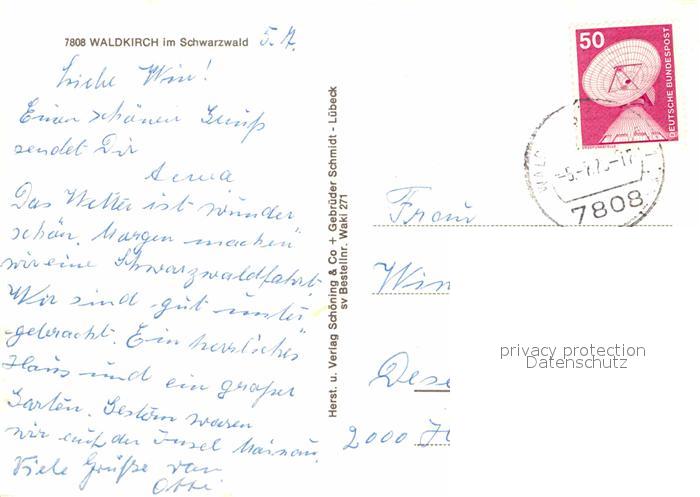 7808 WALDKIRCH im Schwarzwald 5.7.
Liebe Win!
Einen schönen Gruß
sendet Dir
Das Wetter ist wunder
schön. Morgen machen
wir eine Schwarzwaldfahrt.
Wir sind gut unter
gebracht. Ein herrliches
Haus und ein großer
Garten. Gestern waren
wir auf der Insel Mainau.
Viele Grüße von
Otti
Herst. u. Verlag Schöning & Co + Gebrüder Schmidt - Lübeck
sv Bestellnr. Waki 271
50
DEUTSCHE BUNDESPOST
7808
Frau
Win
2000 H
privacy protection
Datenschutz